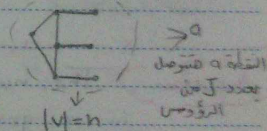 a
النقطة a هتتوصل
بعدد J من
الرؤوس
|V|=n